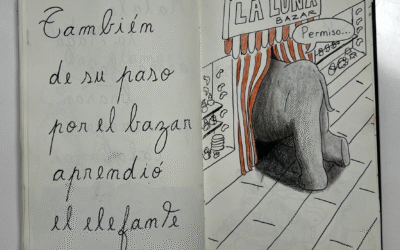 También
de su paso
por el bazar
aprendió
el elefante
LA LUNA
BAZAR
Permiso...